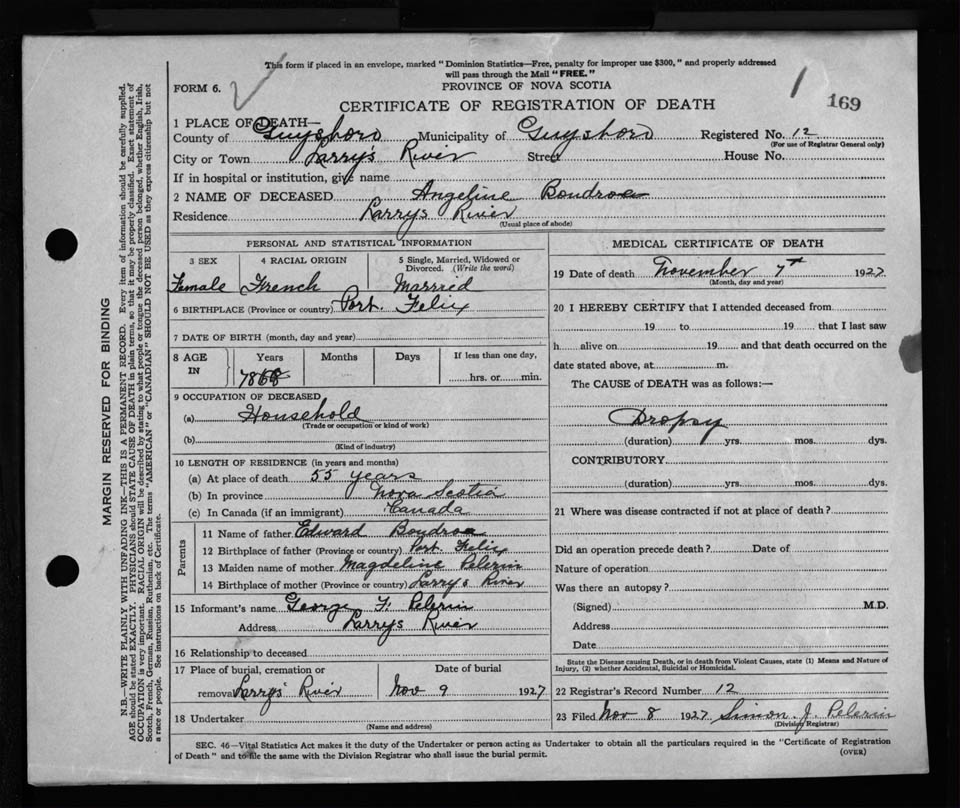 This form if placed in an envelope, marked "Dominion Statistics—Free, penalty for improper use $300," and properly addressed
will pass through the Mail "FREE."
FORM 6.
PROVINCE OF NOVA SCOTIA
CERTIFICATE OF REGISTRATION OF DEATH
169
1 PLACE OF DEATH—
County of Guysboro Municipality of Guysboro Registered No. 12
(For use of Registrar General only)
City or Town Larry's River Street House No.
If in hospital or institution, give name
2 NAME OF DECEASED Angeline Boudroa
Residence Larrys River
(Usual place of abode)
PERSONAL AND STATISTICAL INFORMATION
3 SEX 4 RACIAL ORIGIN 5 Single, Married, Widowed or Divorced. (Write the word)
Female French Married
6 BIRTHPLACE (Province or country) Port Felix
7 DATE OF BIRTH (month, day and year)
8 AGE IN Years Months Days If less than one day,
78 hrs. or min.
9 OCCUPATION OF DECEASED
(a) Household
(Trade or occupation or kind of work)
(b)
(Kind of industry)
10 LENGTH OF RESIDENCE (in years and months)
(a) At place of death 55 years
(b) In province Nova Scotia
(c) In Canada (if an immigrant) Canada
Parents
11 Name of father Edward Boudroa
12 Birthplace of father (Province or country) Port Felix
13 Maiden name of mother Magdeline Pelerin
14 Birthplace of mother (Province or country) Larrys River
15 Informant's name George F. Pelerin
Address Larrys River
16 Relationship to deceased
17 Place of burial, cremation or Date of burial
removal Larrys' River Nov 9 1927
18 Undertaker
(Name and address)
MEDICAL CERTIFICATE OF DEATH
19 Date of death November 7th 1927
(Month, day and year)
20 I HEREBY CERTIFY that I attended deceased from
19 to 19 that I last saw
h alive on 19 and that death occurred on the
date stated above, at m.
The CAUSE of DEATH was as follows:—
Dropsy
(duration) yrs. mos. dys.
CONTRIBUTORY
(duration) yrs. mos. dys.
21 Where was disease contracted if not at place of death?
Did an operation precede death? Date of
Nature of operation
Was there an autopsy?
(Signed) M.D.
Address
Date
State the Disease causing Death, or in death from Violent Causes, state (1) Means and Nature of
Injury, (2) whether Accidental, Suicidal or Homicidal.
22 Registrar's Record Number 12
23 Filed Nov 8 1927 Simon J. Pelerin
(Division Registrar)
SEC. 46—Vital Statistics Act makes it the duty of the Undertaker or person acting as Undertaker to obtain all the particulars required in the "Certificate of Registration
of Death" and to file the same with the Division Registrar who shall issue the burial permit.
(OVER)
MARGIN RESERVED FOR BINDING
N.B.—WRITE PLAINLY WITH UNFADING INK—THIS IS A PERMANENT RECORD. Every item of information should be carefully supplied.
AGE should be stated EXACTLY. PHYSICIANS should STATE CAUSE OF DEATH in plain terms, so that it may be properly classified. Exact statement of
OCCUPATION is very important. RACIAL ORIGIN will be described by stating to what people or tongue the deceased person belonged, whether English, Irish,
Scotch, French, German, Russian, Ruthenian, etc. The terms "AMERICAN" or "CANADIAN" SHOULD NOT BE USED as they express citizenship but not
a race or people. See instructions on back of Certificate.